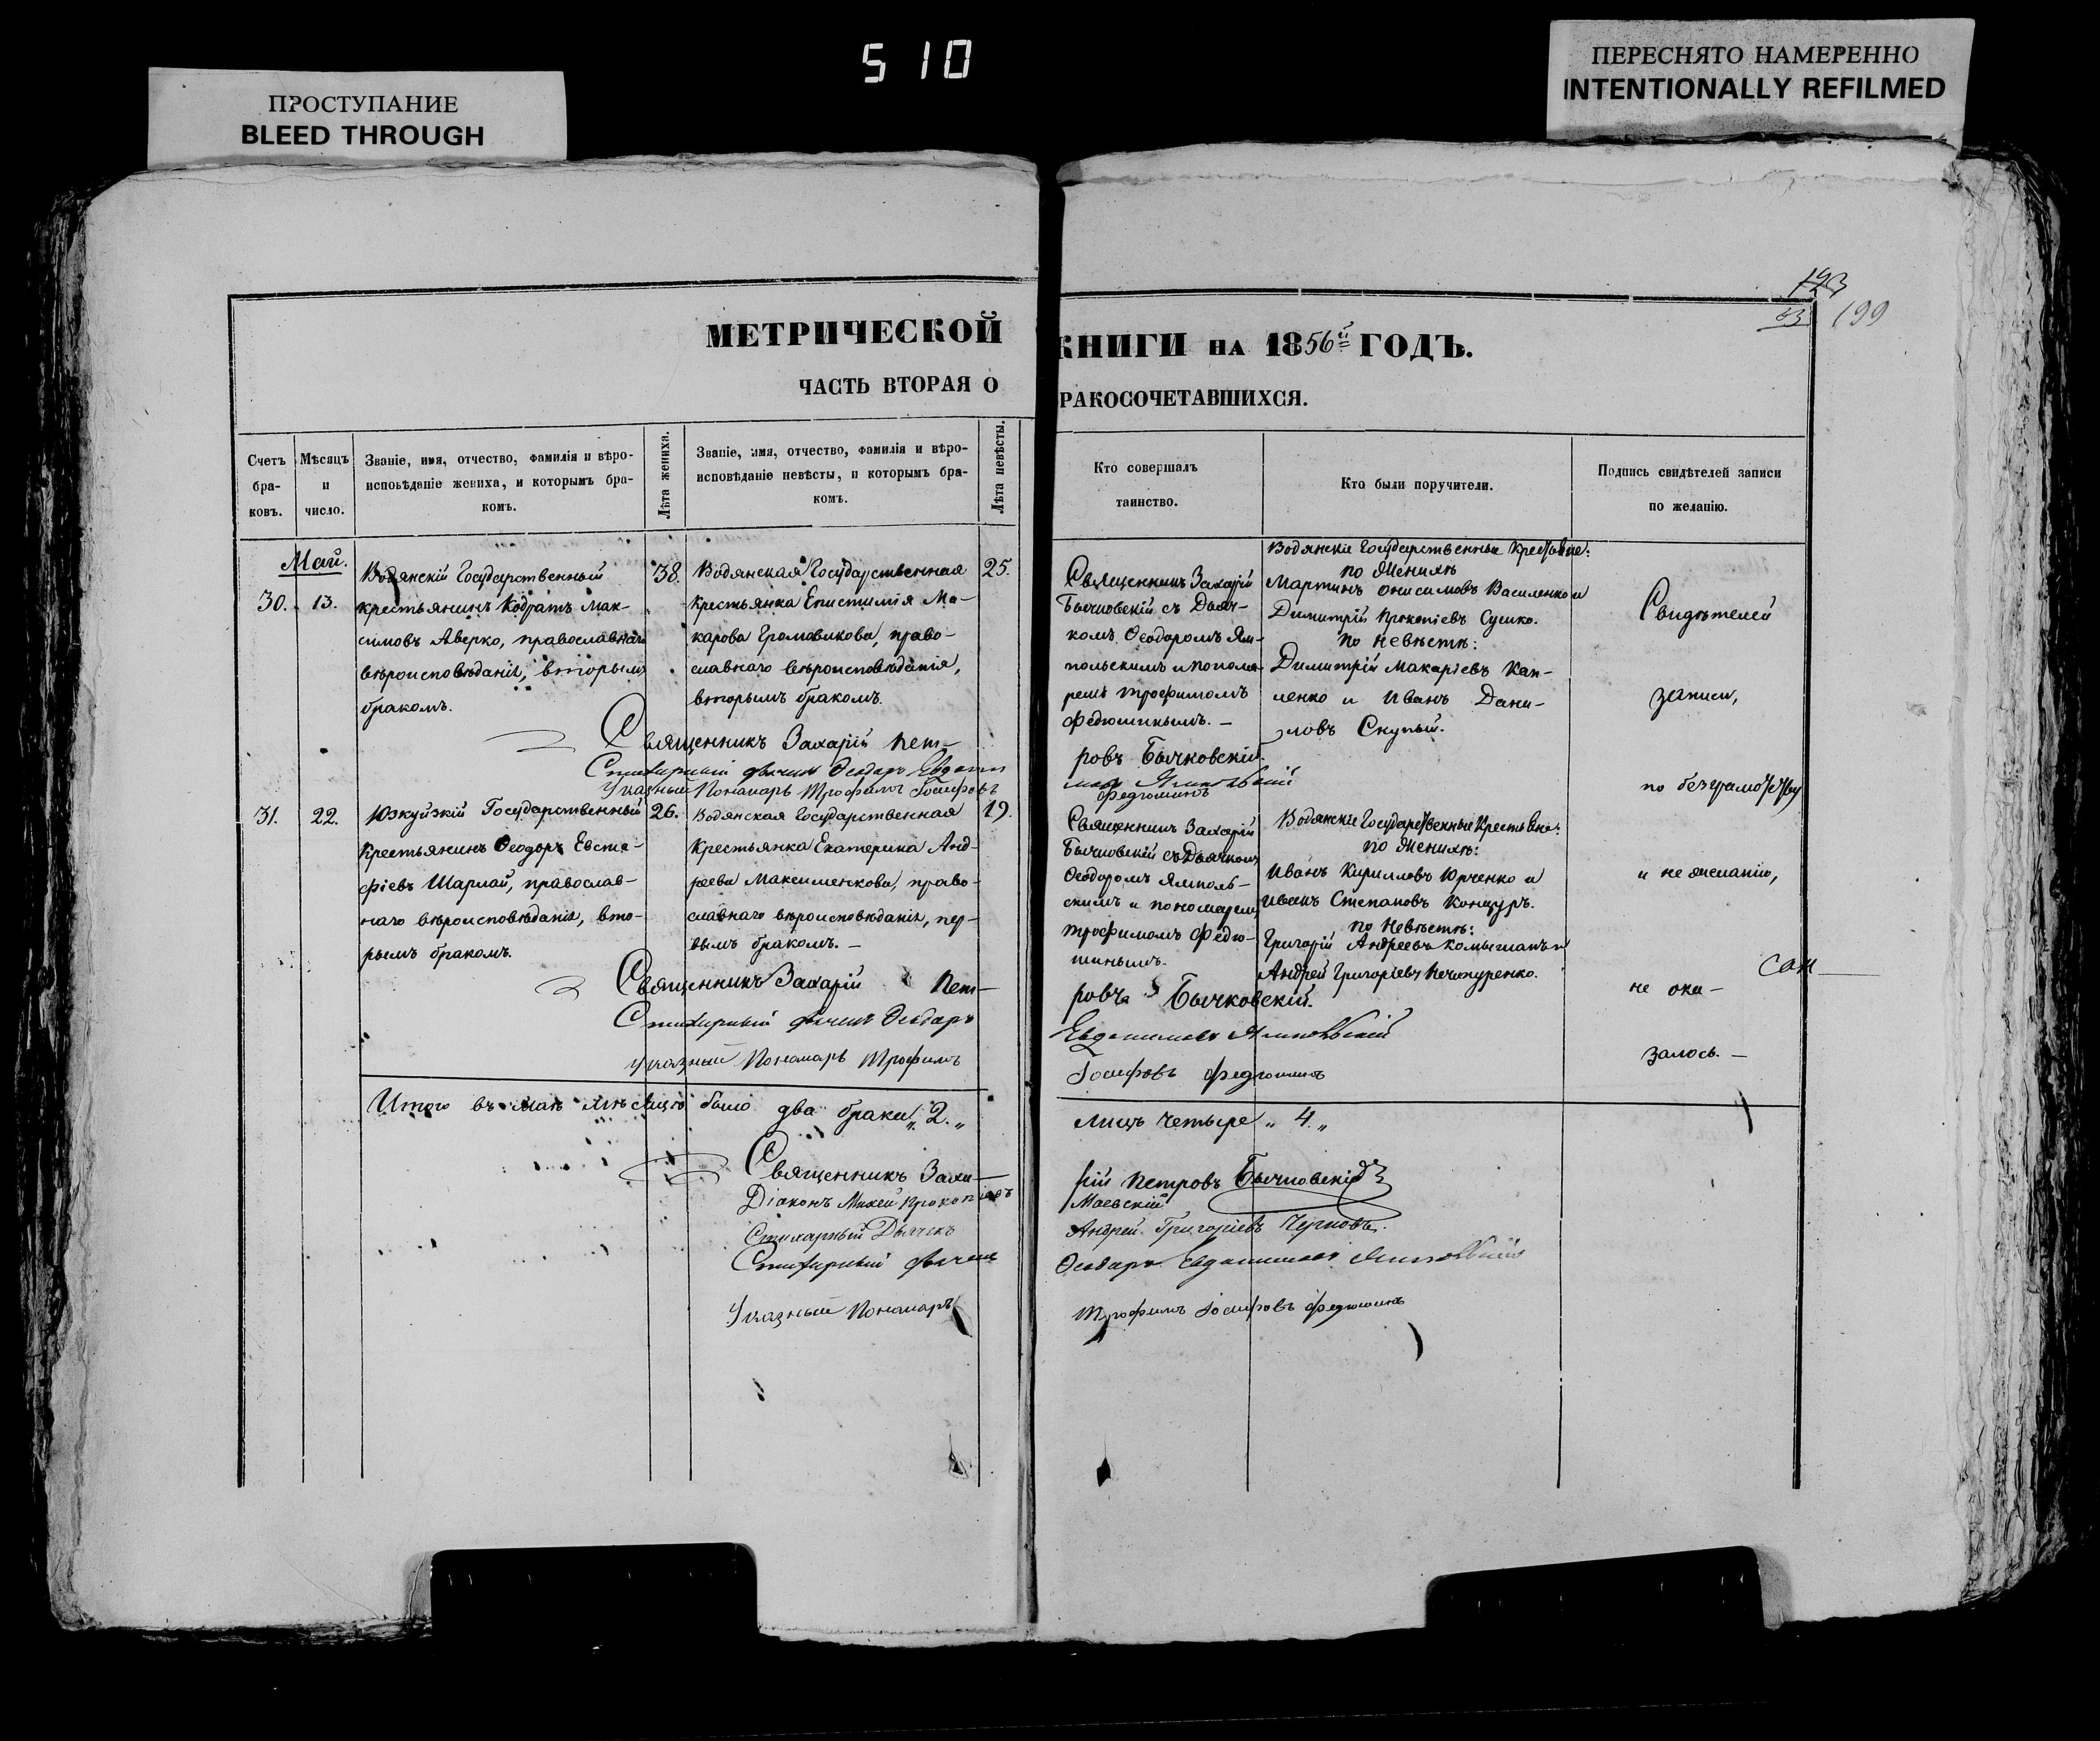 510
ПРОСТУПАНИЕ
BLEED THROUGH
ПЕРЕСНЯТО НАМЕРЕННО
INTENTIONALLY REFILMED
199
МЕТРИЧЕСКОЙ КНИГИ НА 1856й ГОДЪ.
ЧАСТЬ ВТОРАЯ О РАКОСОЧЕТАВШИХСЯ.
Счетъ бра-ковъ.
Мѣсяцъ и число.
Званіе, имя, отчество, фамилія и вѣро-
исповѣданіе жениха, и которымъ бра-
комъ.
Лѣта жениха.
Званіе, имя, отчество, фамилія и вѣро-
исповѣданіе невѣсты, и которымъ бра-
комъ.
Лѣта невѣсты.
Кто совершалъ
таинство.
Кто были поручители.
Подпись свидѣтелей записи
по желанію.
Май.
30. 13.
Водянскій Государственный
крестьянинъ Кодратъ Мак-
симовъ Аверко, православнаго
вѣроисповѣданія, вторымъ
бракомъ.
38.
Водянская Государственная
крестьянка Епистимія Ма-
карова Громовикова, право-
славнаго вѣроисповѣданія,
вторымъ бракомъ.
25.
Священникъ Захарій
Бычковскій съ Дьяч-
комъ Ѳеодоромъ Ям-
польскимъ и понома-
ремъ Трофимомъ
Федюшинымъ. –
Водянскіе Государственные Крестьяне:
по Женихѣ
Мартинъ Онисимовъ Василенко и
Димитрій Прокопіевъ Сушко.
по невѣстѣ:
Димитрій Макаріевъ Кап-
ленко и Иванъ Дани-
ловъ Скупый.
Свидѣтелей
записи,
по безграмотству
и не желанію,
не ока-
залось. –
Священникъ Захарій Пет-
ровъ Бычковскій.
Стихарный дьячекъ Ѳеодоръ Евдоки
мовъ Ямпольскій
Указный Пономарь Трофимъ Іосифовъ
Федюшинъ
31. 22.
Юзкуйзкій Государственный
Крестьянинъ Ѳеодоръ Евста-
фіевъ Шарлай, православ-
наго вѣроисповѣданія, вто-
рымъ бракомъ.
26.
Водянская Государственная
Крестьянка Екатерина Анд-
реева Максименкова, право-
славнаго вѣроисповѣданія, пер-
вымъ бракомъ. –
19.
Священникъ Захарій
Бычковскій съ Дьячкомъ
Ѳеодоромъ Ямполь-
скимъ и пономаремъ
Трофимомъ Федю-
шинымъ.
Водянскіе Государственные Крестьяне:
по Женихѣ:
Иванъ Кирилловъ Юрченко и
Иванъ Степановъ Концуръ.
по Невѣстѣ:
Григорій Андреевъ Комышанъ и
Андрей Григоріевъ Нечипуренко.
Священникъ Захарій Пет-
ровъ Бычковскій.
Стихарный дьячекъ Ѳеодоръ
Евдокимовъ Ямпольскій
Указный Пономарь Трофимъ
Іосифовъ Федюшинъ
Итого въ маѣ мѣсяцѣ было два брака „2.„
лицъ четыре „4„
Священникъ Заха-
рій Петровъ Бычковскій
Діаконъ Михей Прокопіевъ
Маевскій
Стихарный Дьячекъ
Андрей Григоріевъ Черновъ.
Стихарный дьячекъ
Ѳеодоръ Евдокимовъ Ямпольскій
Указный Пономарь
Трофимъ Іосифовъ Федюшинъ